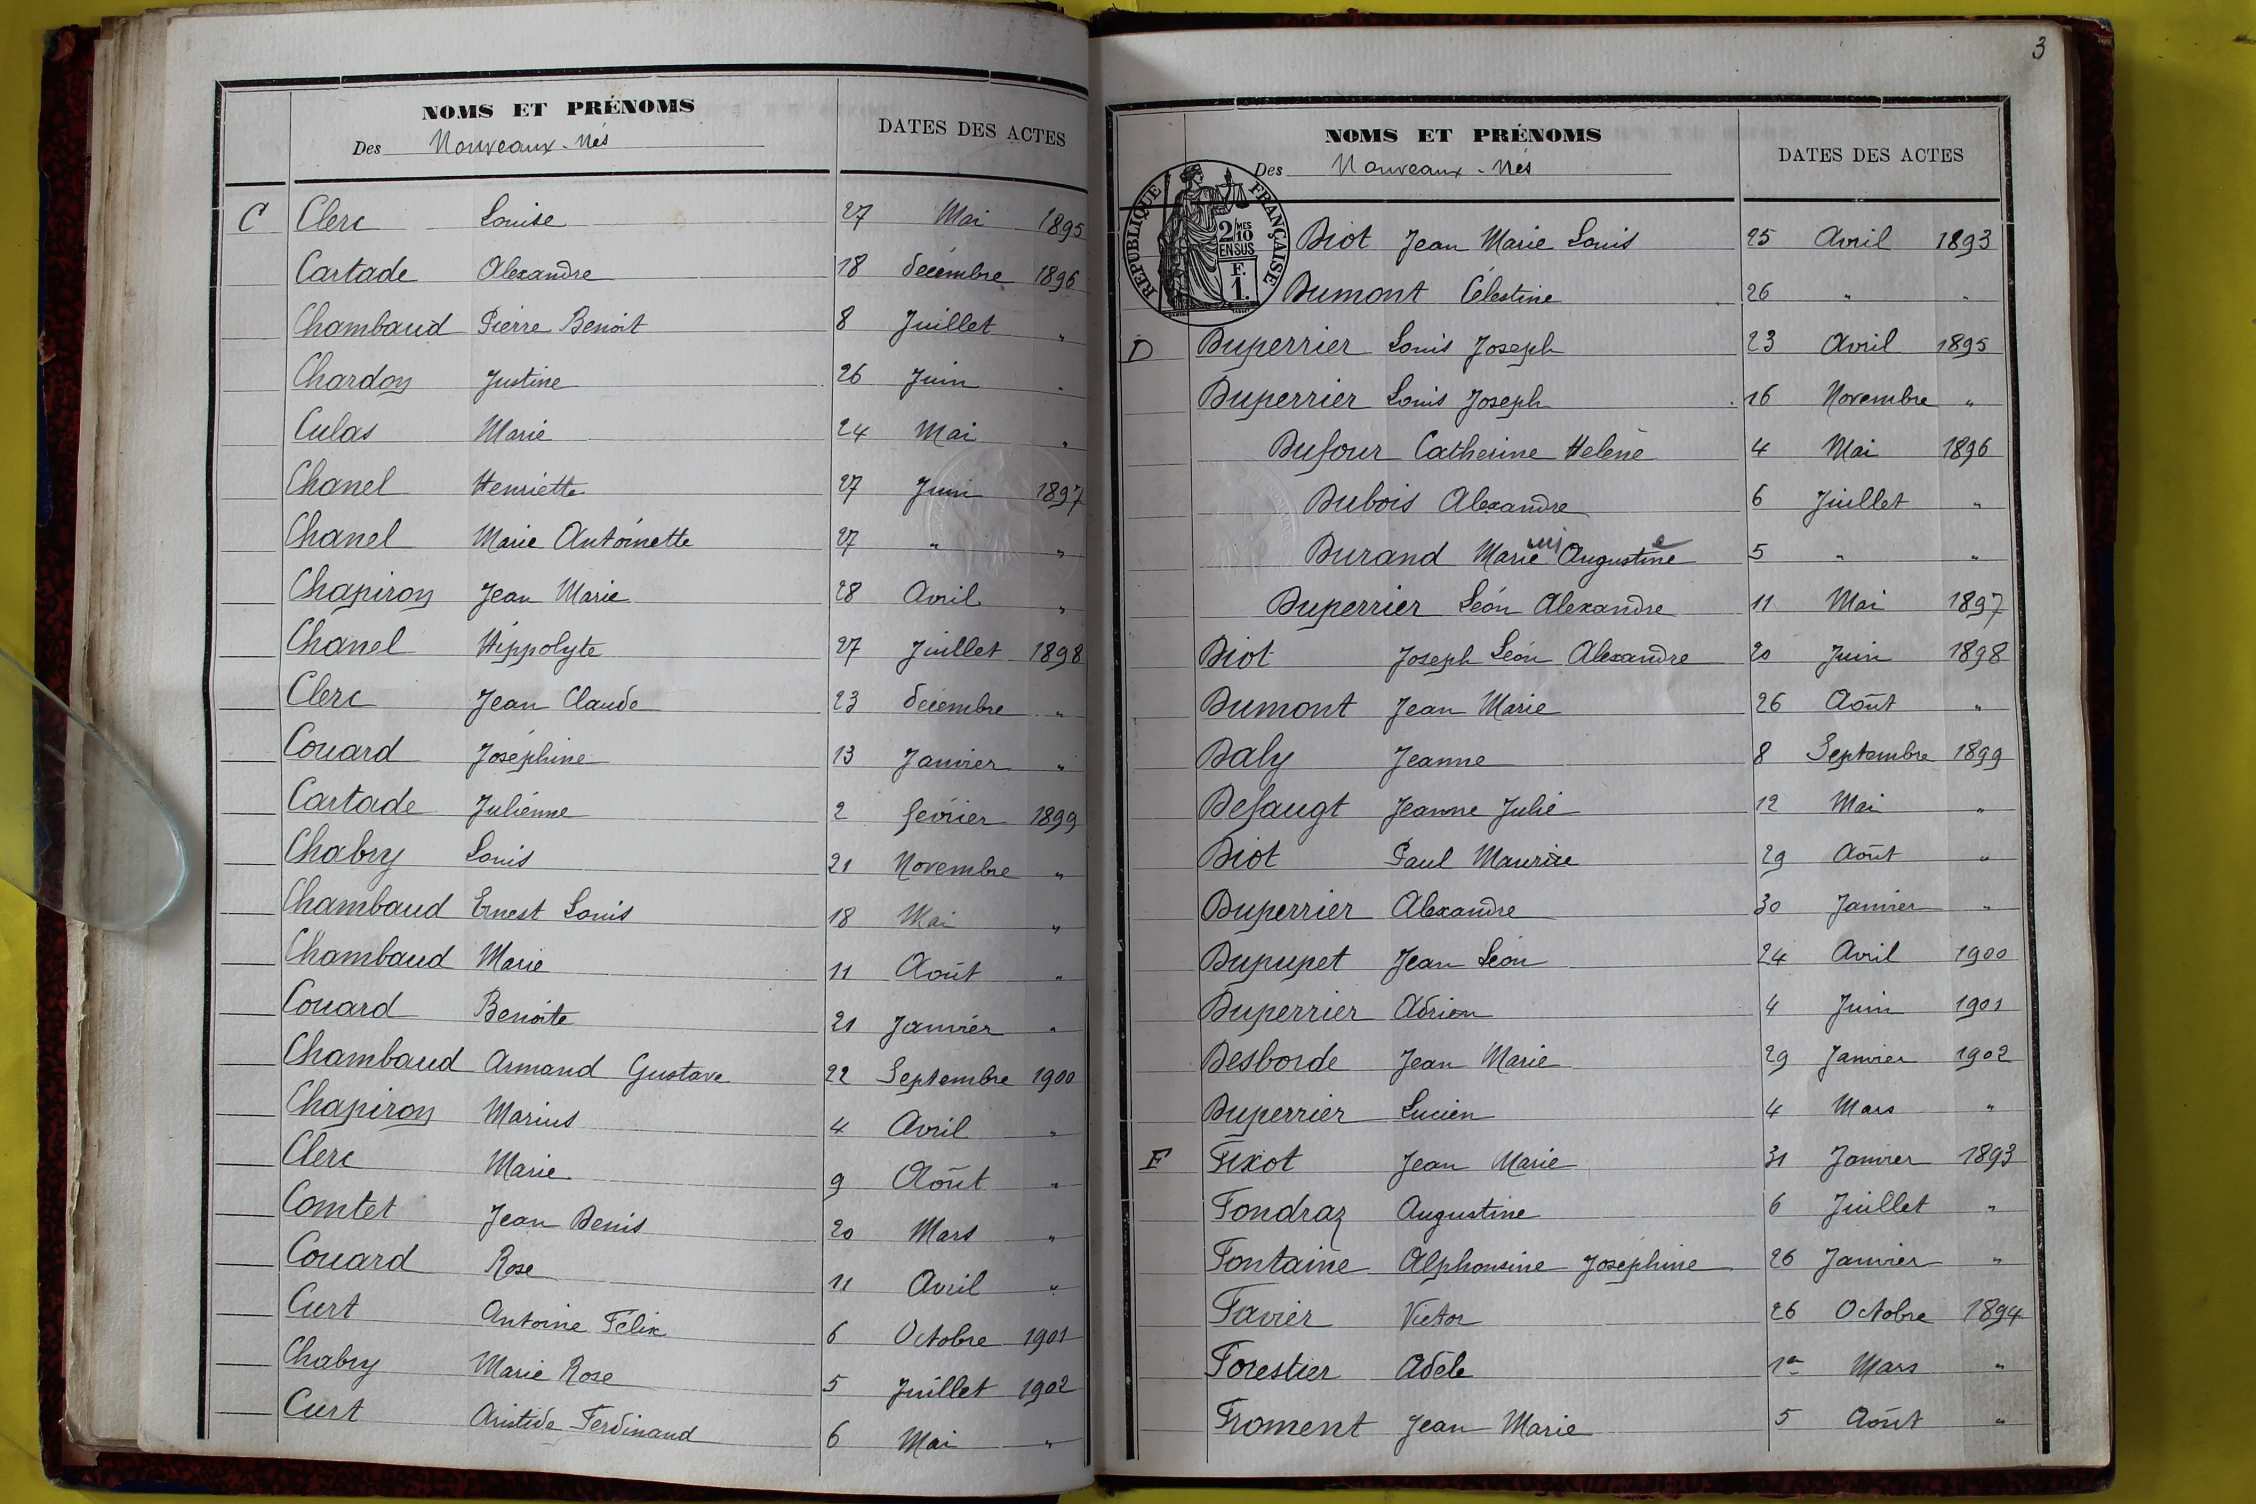 NOMS ET PRÉNOMS
Des Nouveaux-Nés
DATES DES ACTES
C Clerc Louise 27 Mai 1895
Cartade Alexandre 18 décembre 1896
Chambaud Pierre Benoit 8 Juillet "
Chardon Justine 26 Juin "
Culas Marie 24 Mai "
Chanel Henriette 27 Juin 1897
Chanel Marie Antoinette 27 " "
Chapiron Jean Marie 28 Avril "
Chanel Hippolyte 27 Juillet 1898
Clerc Jean Claude 23 décembre "
Couard Joséphine 13 Janvier "
Cartade Julienne 2 février 1899
Chabry Louis 21 Novembre "
Chambaud Ernest Louis 18 Mai "
Chambaud Marie 11 Août "
Couard Benoite 21 Janvier "
Chambaud Armand Gustave 22 Septembre 1900
Chapiron Marius 4 Avril "
Clerc Marie 9 Août "
Comtet Jean Denis 20 Mars "
Couard Rose 11 Avril "
Curt Antoine Félix 6 Octobre 1901
Chabry Marie Rose 5 Juillet 1902
Curt Aristide Ferdinand 6 Mai "
3
NOMS ET PRÉNOMS
Des Nouveaux-Nés
DATES DES ACTES
RÉPUBLIQUE FRANÇAISE
2/10 MES
EN SUS
F.
1.
Diot Jean Marie Louis 25 Avril 1893
Dumont Célestine 26 " "
D Duperrier Louis Joseph 23 Avril 1895
Duperrier Louis Joseph 16 Novembre "
Dufour Catherine Helène 4 Mai 1896
Dubois Alexandre 6 Juillet "
Durand Marie Augustine 5 " "
Duperrier Léon Alexandre 11 Mai 1897
Diot Joseph Léon Alexandre 20 Juin 1898
Dumont Jean Marie 26 Août "
Daly Jeanne 8 Septembre 1899
Defaugt Jeanne Julie 12 Mai "
Diot Paul Maurice 29 Août "
Duperrier Alexandre 30 Janvier "
Dupupet Jean Léon 24 Avril 1900
Duperrier Adrien 4 Juin 1901
Desborde Jean Marie 29 Janvier 1902
Duperrier Lucien 4 Mars "
F Fixot Jean Marie 31 Janvier 1893
Fondraz Augustine 6 Juillet "
Fontaine Alphonsine Joséphine 26 Janvier "
Favier Victor 26 Octobre 1894
Forestier Adèle 1er Mars "
Froment Jean Marie 5 Août "